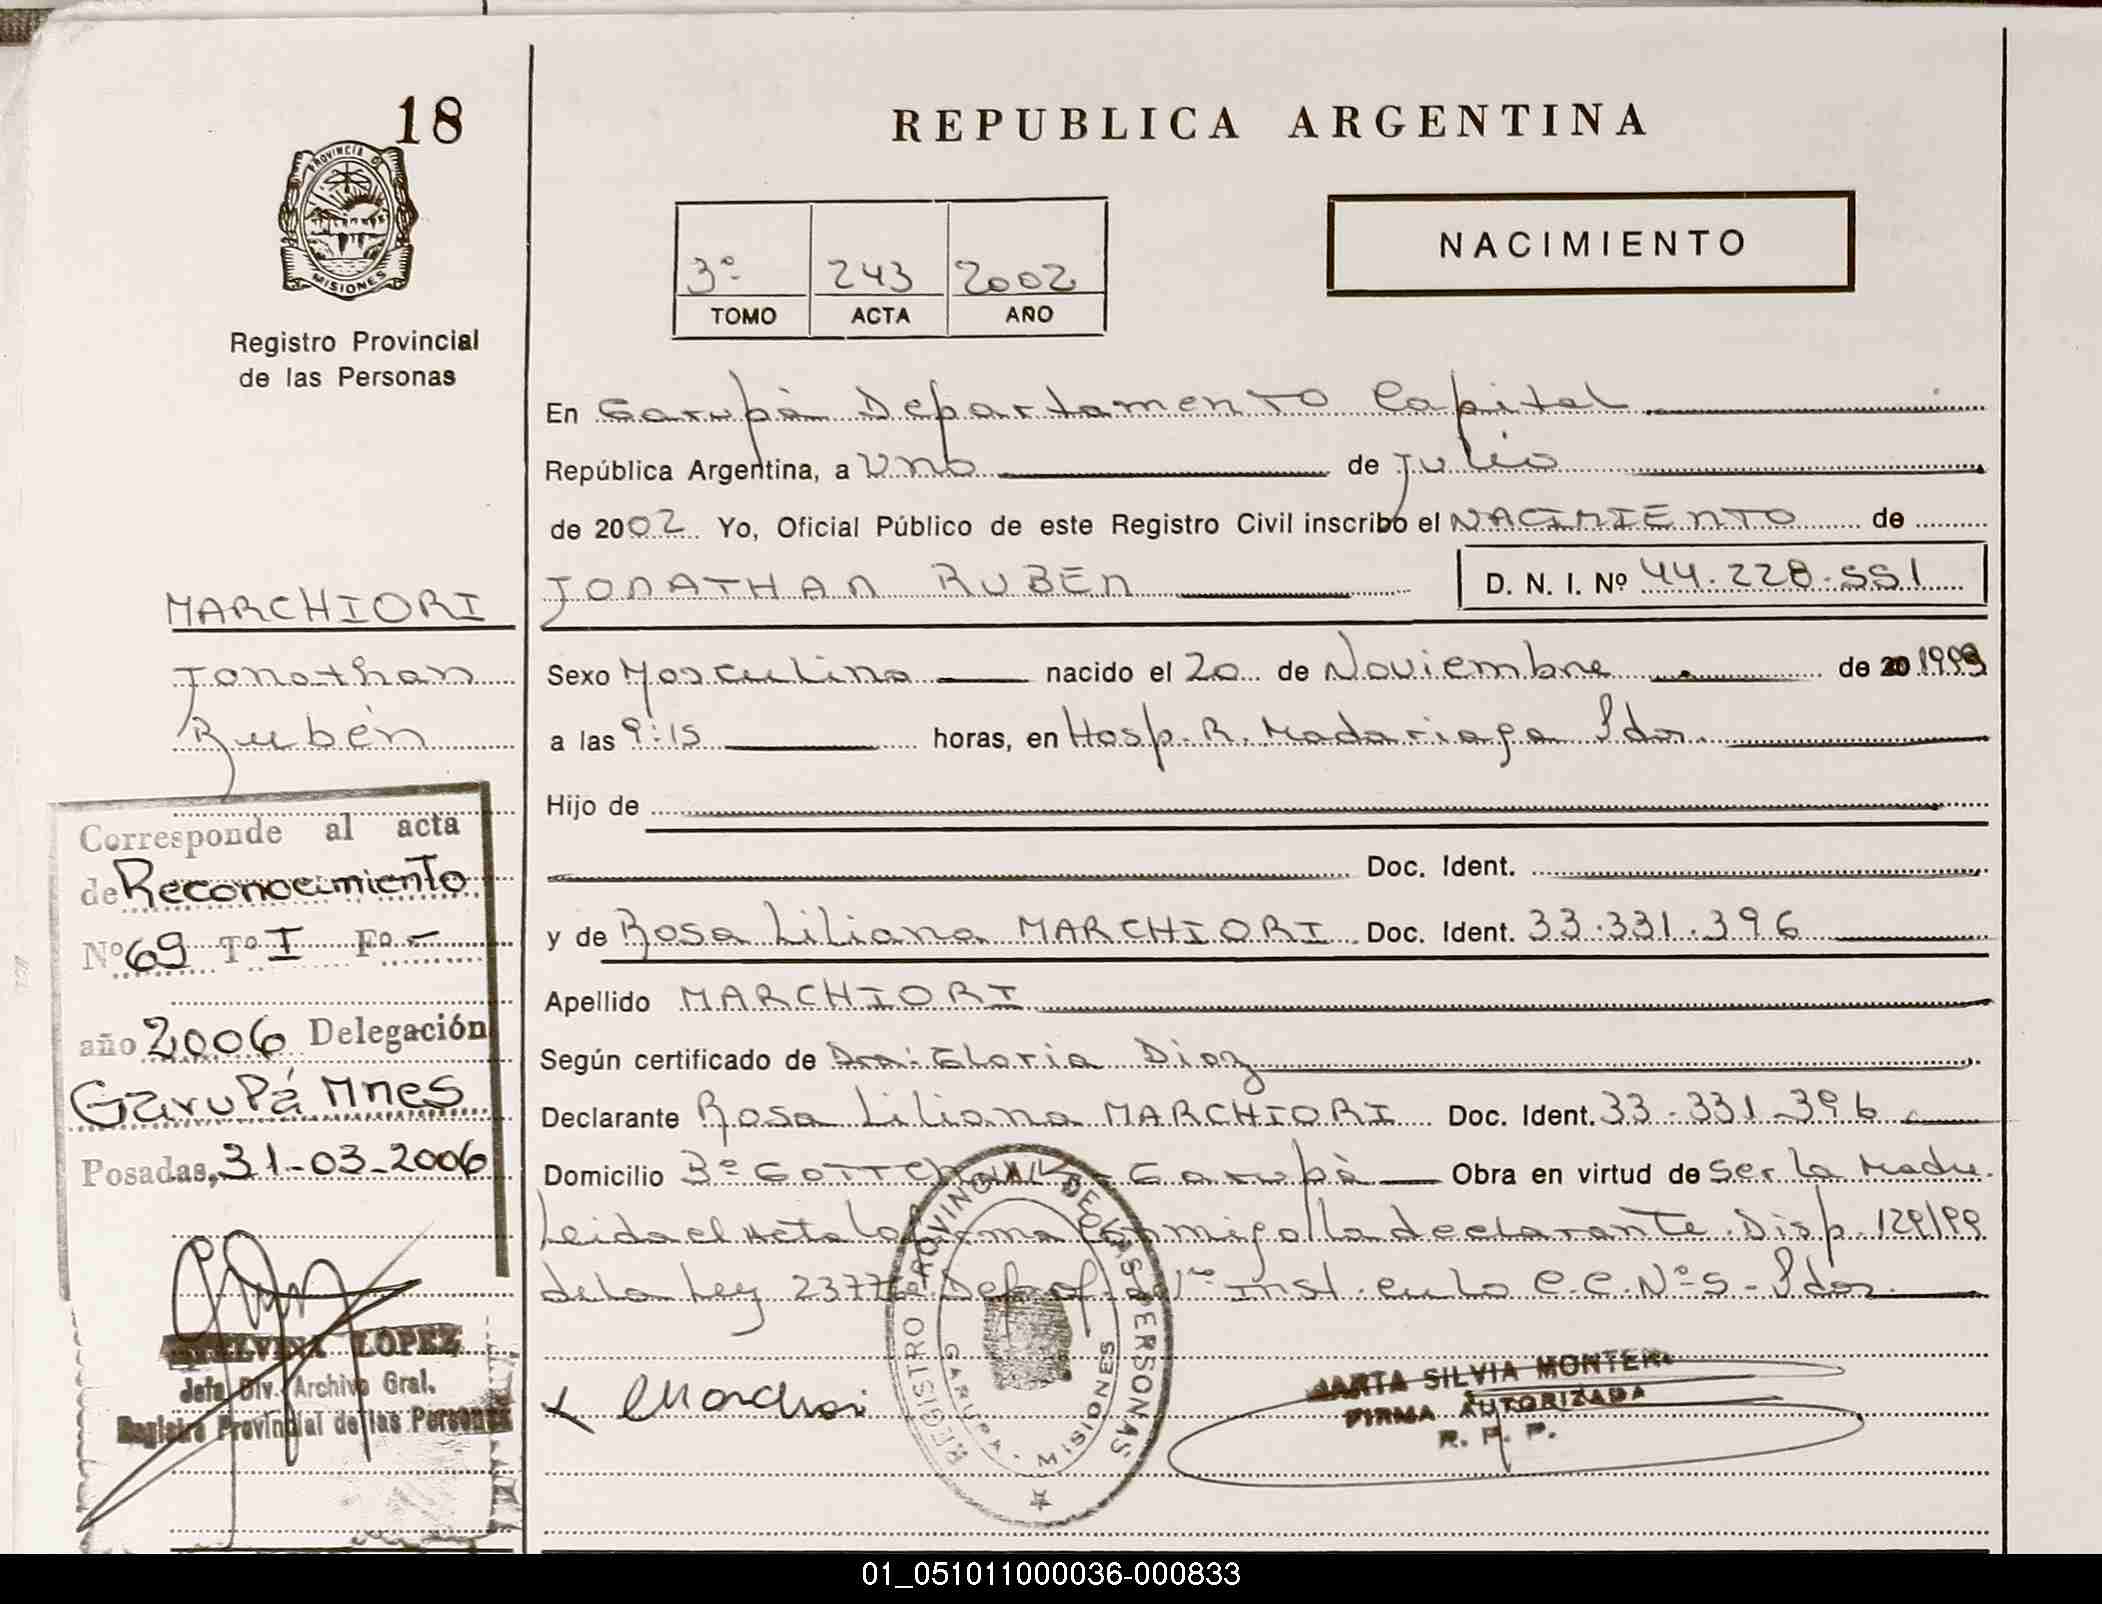 18
REPUBLICA ARGENTINA
PROVINCIA D
MISIONES
3º 243 2002
TOMO ACTA AÑO
NACIMIENTO
Registro Provincial
de las Personas
En Garupá Departamento Capital
República Argentina, a Uno de Julio
de 2002 Yo, Oficial Público de este Registro Civil inscribo el NACIMIENTO de
MARCHIORI
Jonathan
Rubén
JONATHAN RUBEN D. N. I. Nº 44.228.551
Sexo Masculino nacido el 20 de Noviembre de 20 1999
a las 9:15 horas, en Hosp. R. Madariaga Pdas.
Hijo de
Doc. Ident.
y de Rosa Liliana MARCHIORI Doc. Ident. 33.331.396
Apellido MARCHIORI
Según certificado de Dra: Gloria Diaz
Declarante Rosa Liliana MARCHIORI Doc. Ident. 33.331.396
Domicilio Bº Garupá Obra en virtud de Ser la Madre.
Leida el Acta la firma conmigo la declarante. Disp. 129/99
de la Ley del Inst. en lo C.C. Nº 5 - Pdas.
Corresponde al acta
de Reconocimiento
Nº 69 Tº I Fº -
año 2006 Delegación
Garupá Mnes
Posadas, 31-03-2006
LOPEZ
Jefa Div. Archivo Gral.
Registro Provincial de las Personas
x Marchiori
REGISTRO PROVINCIAL DE LAS PERSONAS
GARUPA - MISIONES
MARTA SILVIA
FIRMA AUTORIZADA
R. P. P.
01_051011000036-000833